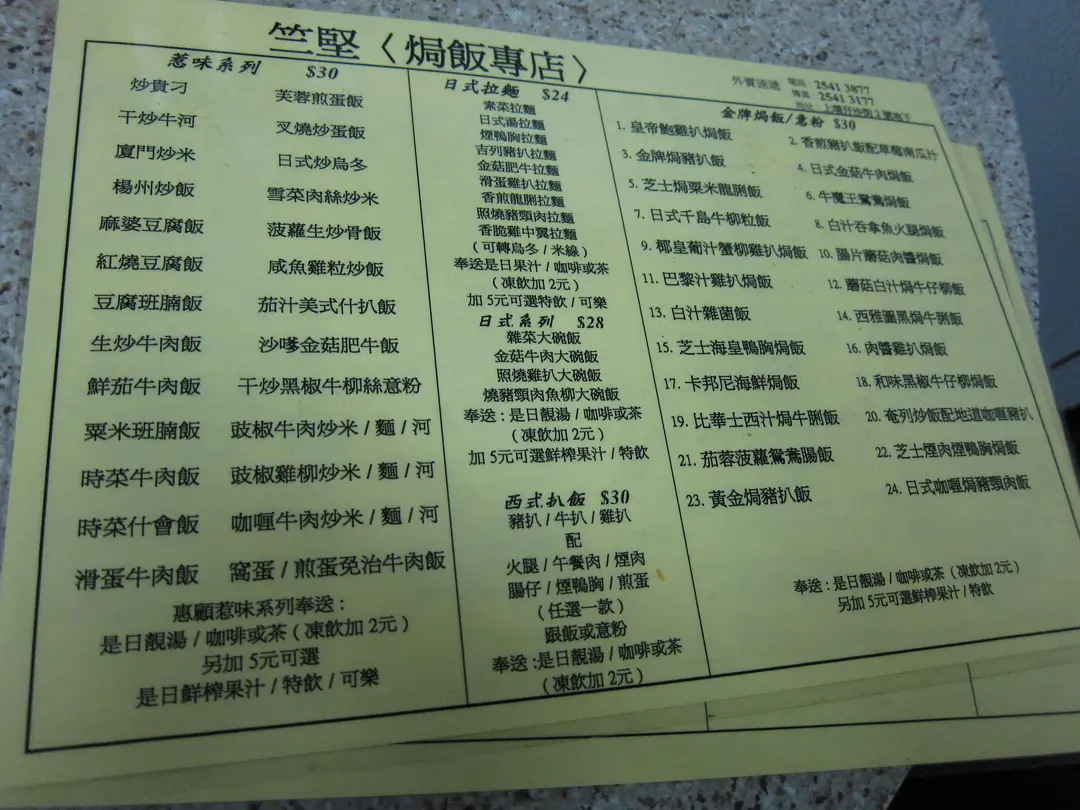 竺堅〈焗飯專店〉
外賣速遞 電話 2541 3877
傳真 2541 3177
地址 上環仔沙街2號地下
惹味系列 $30
炒貴刁 芙蓉煎蛋飯
干炒牛河 叉燒炒蛋飯
廈門炒米 日式炒烏冬
楊州炒飯 雪菜肉絲炒米
麻婆豆腐飯 菠蘿生炒骨飯
紅燒豆腐飯 咸魚雞粒炒飯
豆腐班腩飯 茄汁美式什扒飯
生炒牛肉飯 沙嗲金菇肥牛飯
鮮茄牛肉飯 干炒黑椒牛柳絲意粉
粟米班腩飯 豉椒牛肉炒米 / 麵 / 河
時菜牛肉飯 豉椒雞柳炒米 / 麵 / 河
時菜什會飯 咖喱牛肉炒米 / 麵 / 河
滑蛋牛肉飯 窩蛋 / 煎蛋免治牛肉飯
惠顧惹味系列奉送 :
是日靚湯 / 咖啡或茶 ( 凍飲加 2元 )
另加 5元可選
是日鮮榨果汁 / 特飲 / 可樂
日式拉麵 $24
素菜拉麵
日式湯拉麵
煙鴨胸拉麵
吉列豬扒拉麵
金菇肥牛拉麵
滑蛋雞扒拉麵
香煎龍脷拉麵
照燒豬頸肉拉麵
香脆雞中翼拉麵
( 可轉烏冬 / 米線 )
奉送是日果汁 / 咖啡或茶
( 凍飲加 2元 )
加 5元可選特飲 / 可樂
日式系列 $28
雜菜大碗飯
金菇牛肉大碗飯
照燒雞扒大碗飯
燒豬頸肉魚柳大碗飯
奉送 : 是日靚湯 / 咖啡或茶
( 凍飲加 2元 )
加 5元可選鮮榨果汁 / 特飲
西式扒飯 $30
豬扒 / 牛扒 / 雞扒
配
火腿 / 午餐肉 / 煙肉
腸仔 / 煙鴨胸 / 煎蛋
( 任選一款 )
跟飯或意粉
奉送 :是日靚湯 / 咖啡或茶
( 凍飲加 2元 )
金牌焗飯/意粉 $30
1. 皇帝鮑雞扒焗飯 2. 香煎豬扒飯配草龍南瓜汁
3. 金牌焗豬扒飯 4. 日式金菇牛肉焗飯
5. 芝士焗粟米龍脷飯 6. 牛魔王鴛鴦焗飯
7. 日式千島牛柳粒飯 8. 白汁吞拿魚火腿焗飯
9. 椰皇葡汁蟹柳雞扒焗飯 10. 腸片蘑菇肉醬焗飯
11. 巴黎汁雞扒焗飯 12. 蘑菇白汁焗牛仔柳飯
13. 白汁雜菌飯 14. 西雅圖黑焗牛脷飯
15. 芝士海皇鴨胸焗飯 16. 肉醬雞扒焗飯
17. 卡邦尼海鮮焗飯 18. 和味黑椒牛仔柳焗飯
19. 比華士西汁焗牛脷飯 20. 奄列炒飯配地道咖喱豬扒
21. 茄蓉菠蘿鴛鴦腸飯 22. 芝士煙肉煙鴨胸焗飯
23. 黃金焗豬扒飯 24. 日式咖喱焗豬頸肉飯
奉送 : 是日靚湯 / 咖啡或茶 ( 凍飲加 2元 )
另加 5元可選鮮榨果汁 / 特飲